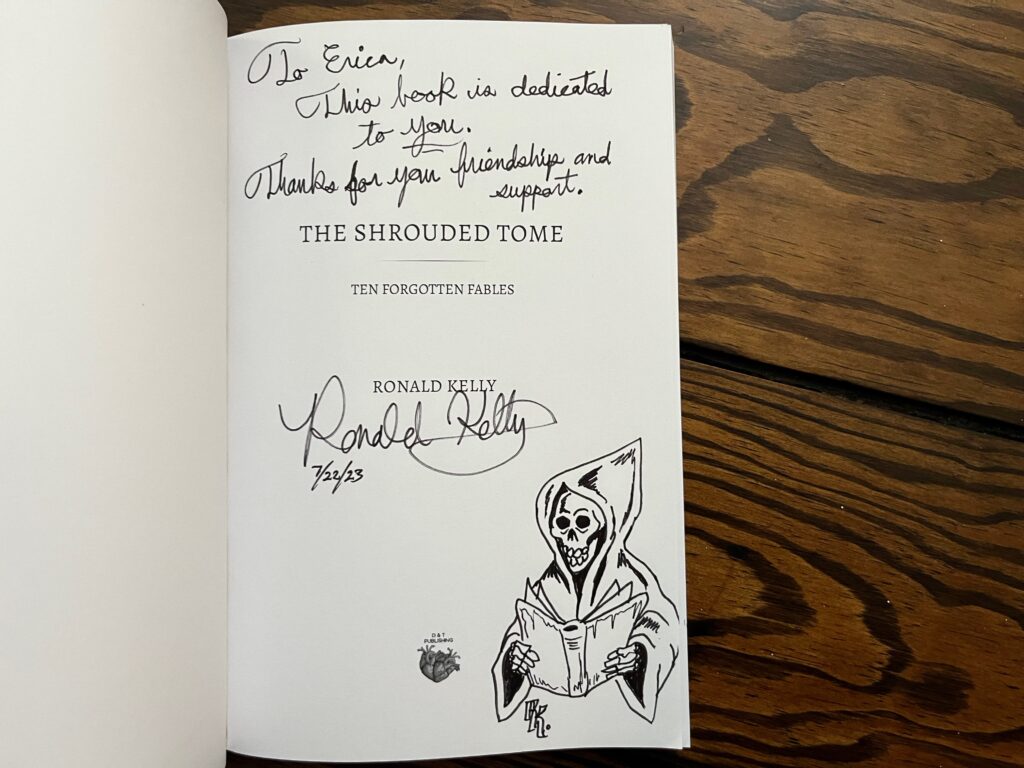 To Erica,
This book is dedicated
to you.
Thanks for your friendship and
support.
THE SHROUDED TOME
TEN FORGOTTEN FABLES
RONALD KELLY
Ronald Kelly
7/22/23
D & T
PUBLISHING
RK.